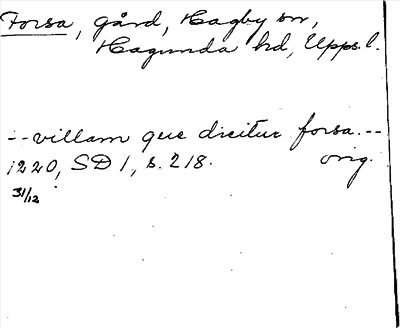 Forsa, gård, Hagby sn,
Hagunda hd, Upps. l.
-- villam que dicitur forsa. --
1220, SD 1, s. 218. orig.
31/12